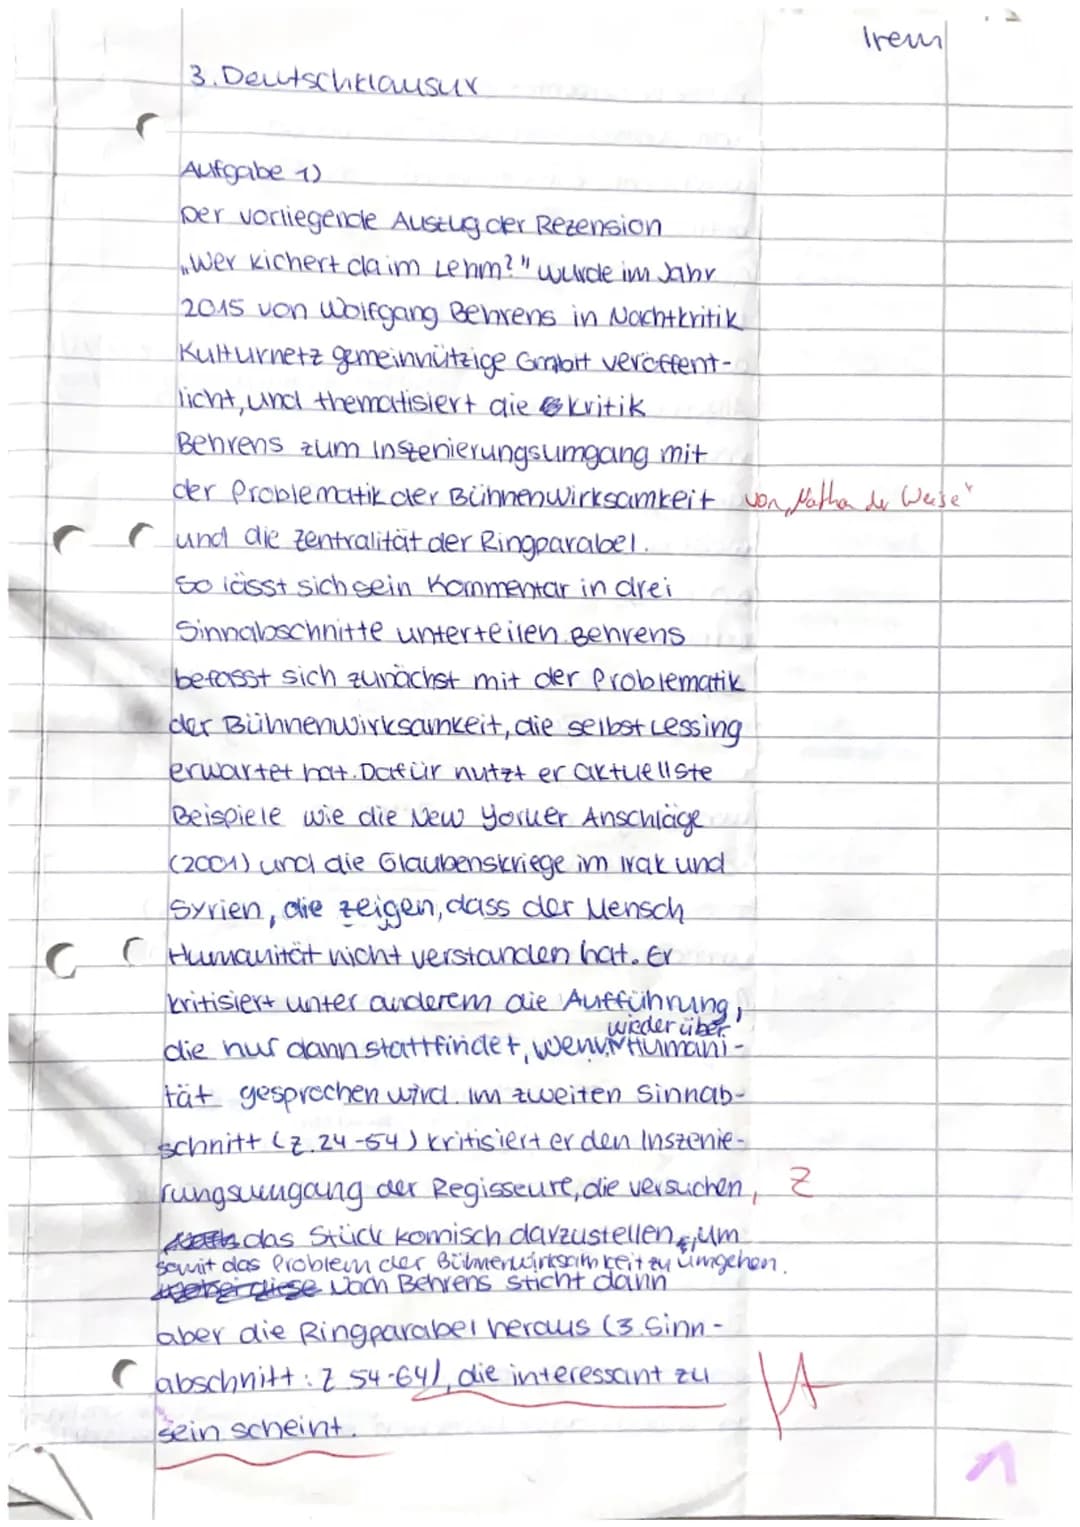 Irem
3. Deutschklausur
Aufgabe 1)
Der vorliegende Auszug der Rezension
„Wer kichert da im Lehm?" wurde im Jahr
2015 von Wolfgang Behrens in Nachtkritik
Kulturnetz gemeinnützige GmbH veröffent-
licht, und thematisiert die Kritik
Behrens zum Inszenierungsumgang mit
der Problematik der Bühnenwirksamkeit von „Nathan der Weise"
und die Zentralität der Ringparabel.
So lässt sich sein Kommentar in drei
Sinnabschnitte unterteilen. Behrens
befasst sich zunächst mit der Problematik
der Bühnenwirksamkeit, die selbst Lessing
erwartet hat. Dafür nutzt er aktuellste
Beispiele wie die New Yorker Anschläge
(2001) und die Glaubenskriege im Irak und
Syrien, die zeigen, dass der Mensch
Humanität nicht verstanden hat. Er
kritisiert unter anderem die Aufführung,
die nur dann stattfindet, wenn wieder über Humani-
tät gesprochen wird. Im zweiten Sinnab-
schnitt (Z. 24-54) kritisiert er den Inszenie-
rungsumgang der Regisseure, die versuchen, Z
das Stück komisch darzustellen, um
somit das Problem der Bühnenwirksamkeit zu umgehen.
Nach Behrens sticht dann
aber die Ringparabel heraus (3. Sinn-
abschnitt: Z 54-64), die interessant zu
sein scheint.
1